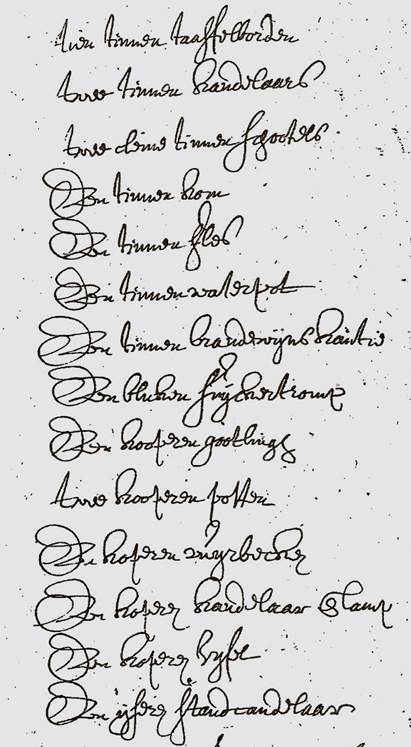 tien tinnen taaffelborden
twee tinnen kandelaars
twee cleine tinnen schootels
Een tinnen kom
Een tinnen fles
Een tinnen waterpot
Een tinnen brandewijns kantie
Een blicken suijckertromp
Een kooperen gootling
twee kooperen potten
Een koperen vuyrbecken
Een koperen kandelaar & lamp
Een koperen vysel
Een ijseren stand candelaar